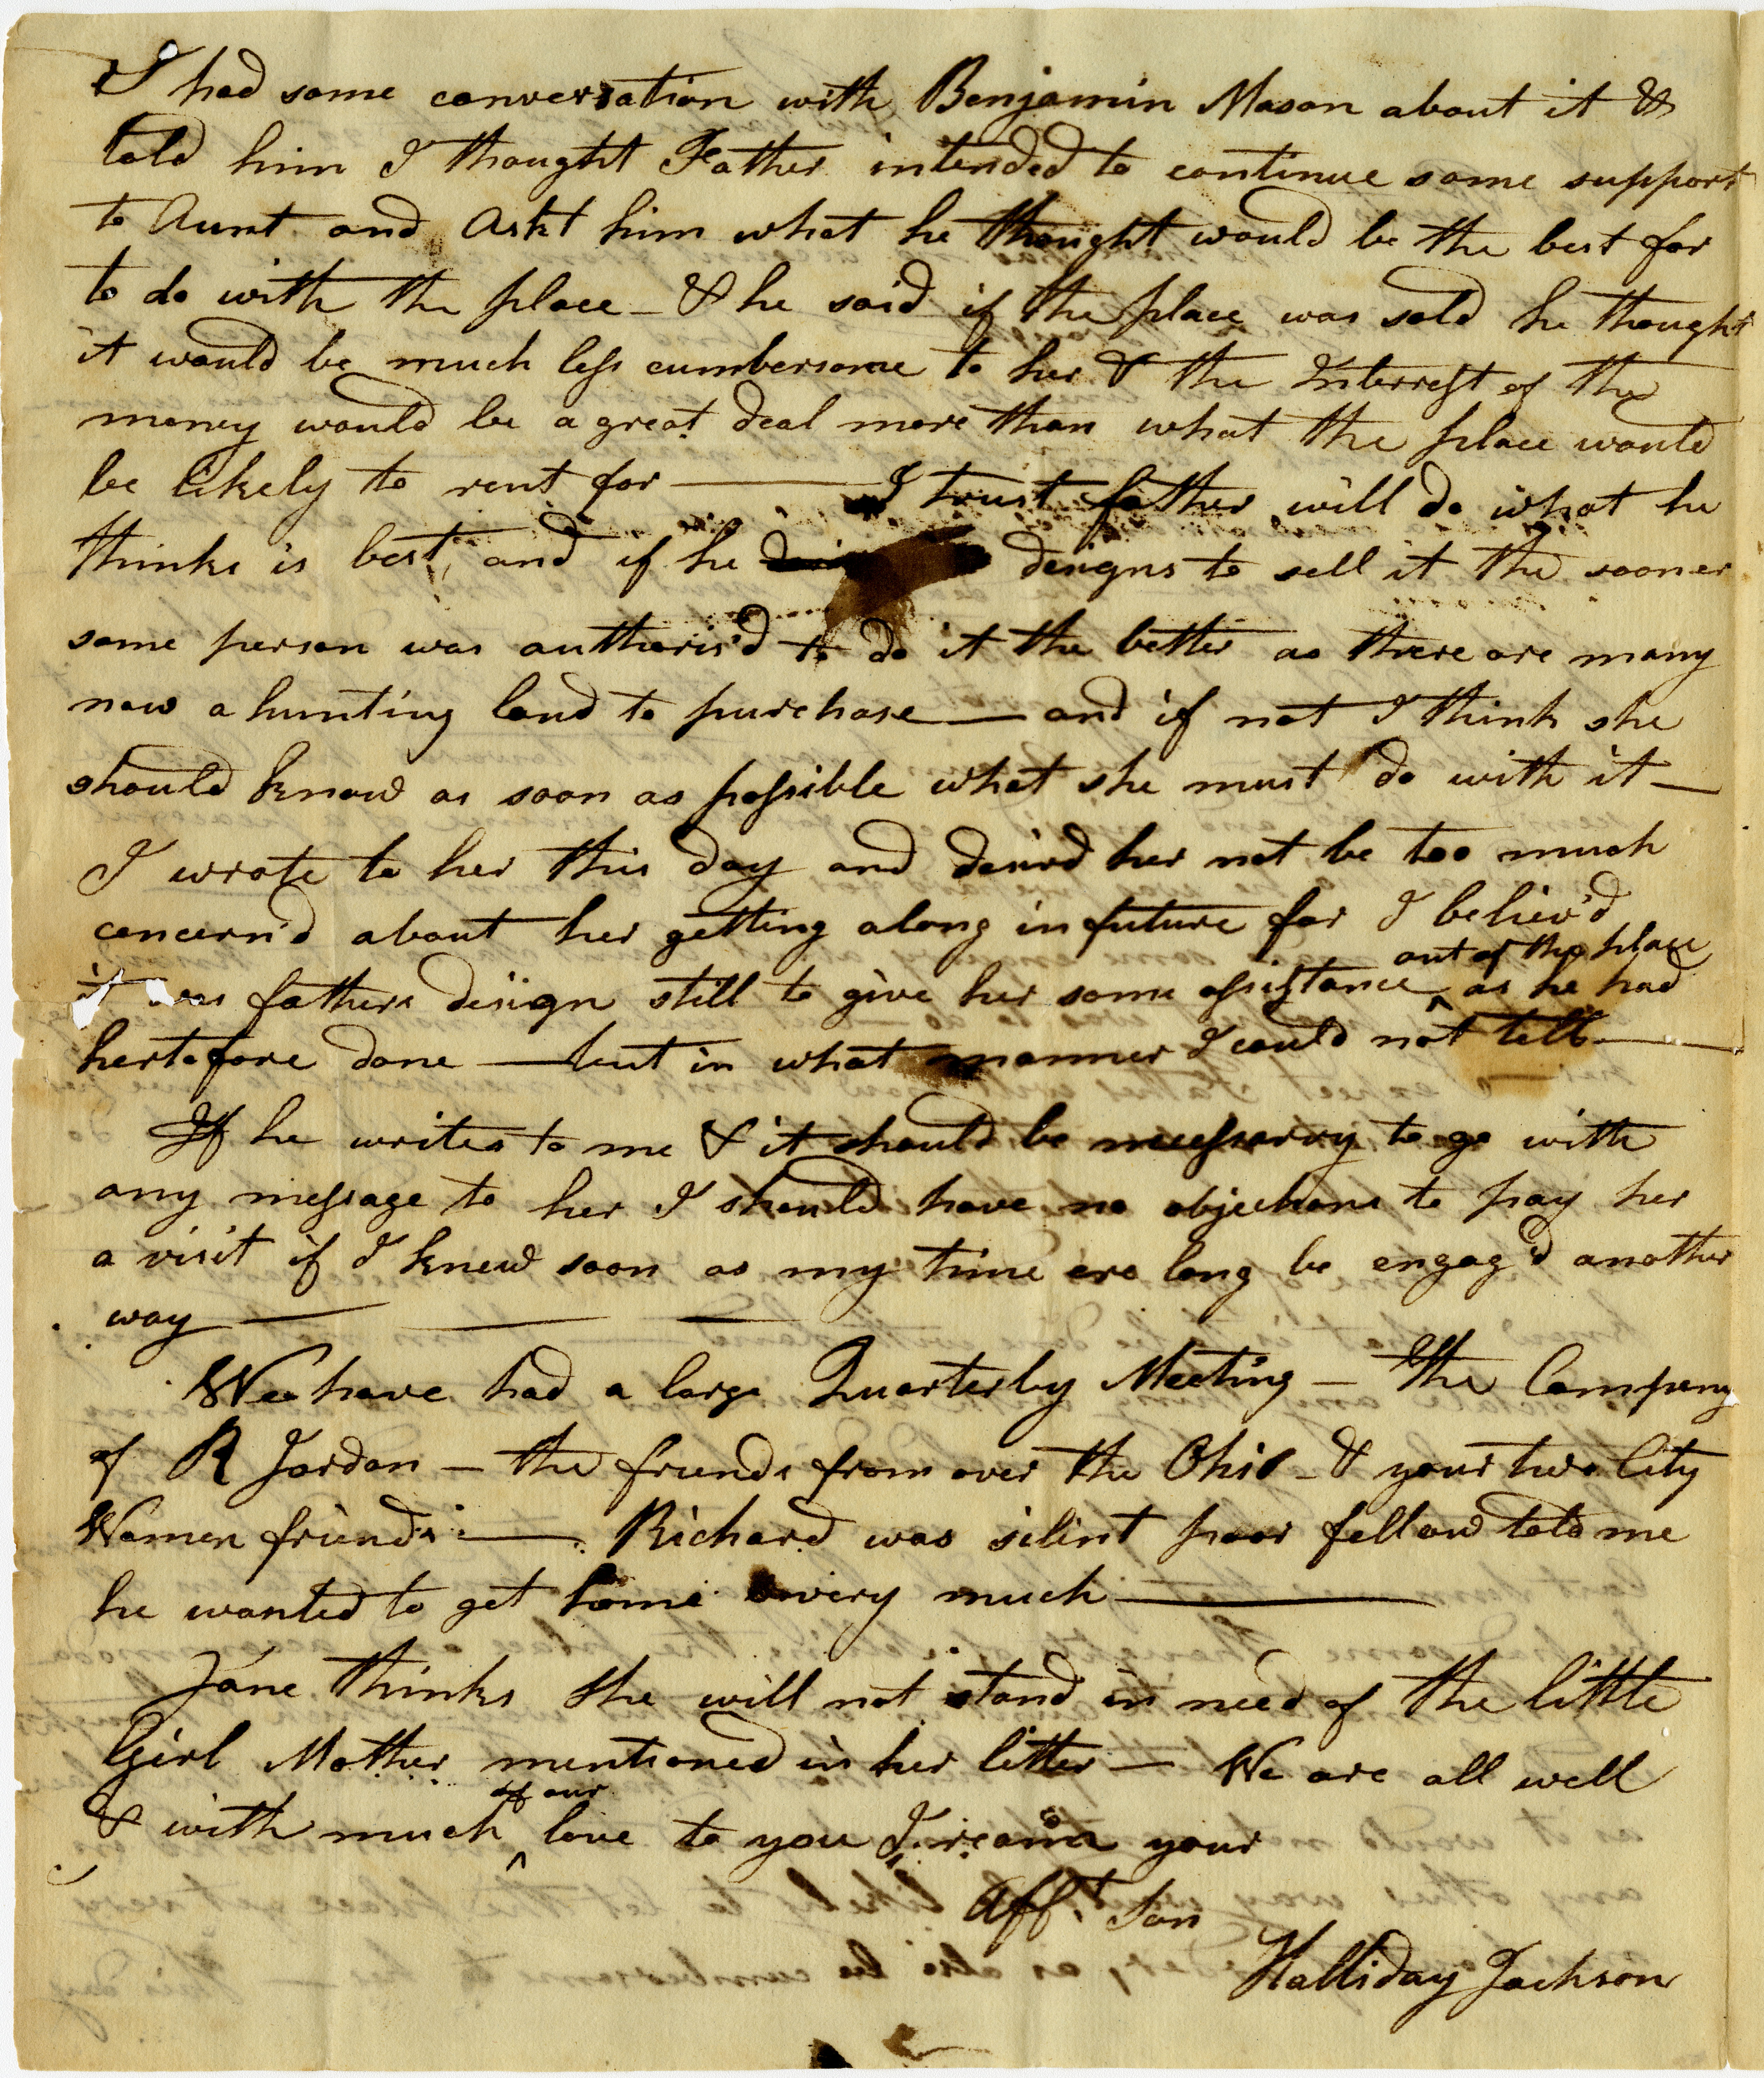 I had some conversation with Benjamin Mason about it &
told him I thought Father intended to continue some support
to Aunt and Askt him what he thought would be the best for
to do with the place – & he said if the place was sold he thought
it would be much less cumbersome to her & the Interrest of the
money would be a great deal more than what the place would
be likely to rent for —— I trust father will do what he
thinks is best, and if he designs to sell it the sooner
some person was authoris'd to do it the better as there are many
now a hunting land to purchase — and if not I think she
should know as soon as possible what she must do with it —
I wrote to her this day and desird her not be too much
concern'd about her getting along in future for I believ'd
out of the place
it was fathers design still to give her some assistance ^ as he had
hertofore done — but in what manner I could not tell ——
If he writes to me & it should be necessarry to go with
any message to her I should have no objections to pay her
a visit if I knew soon as my time ere long be engag'd another
way — — —
We have had a large Quarterly Meeting – The Company
of R Jordan – the friends from over the Ohio – & your two City
Women friends —. Richard was silent poor fellow told me
he wanted to get home very much ——
Jane thinks she will not stand in need of the little
Girl Mother mentioned in her letter — We are all well
of our
& with much ^ love to you I remain your
Afft. Son
Halliday Jackson